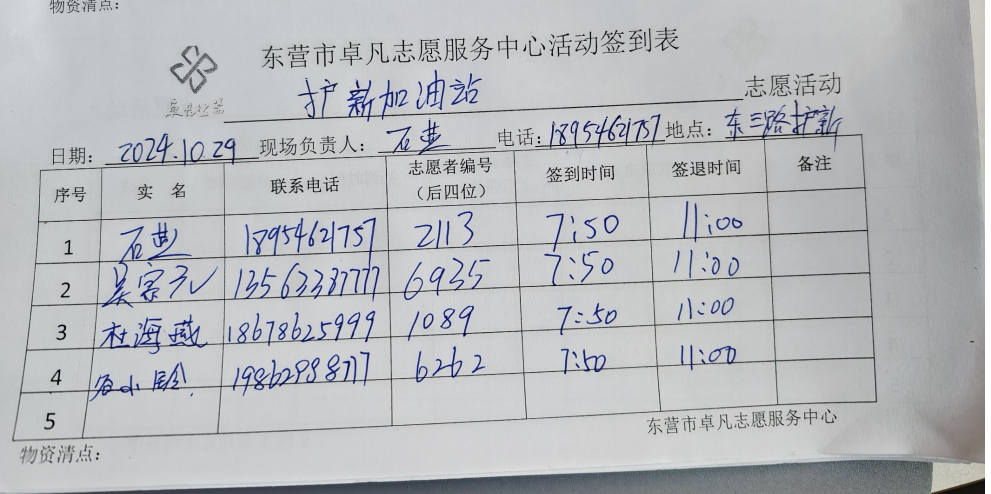 物资清点：
东营市卓凡志愿服务中心活动签到表
卓凡公益
护新加油站 志愿活动
日期： 2024.10.29 现场负责人： 石燕 电话： 18954621757 地点： 东三路护新
序号 实 名 联系电话 志愿者编号（后四位） 签到时间 签退时间 备注
1 18954621757 2113 7:50 11:00
2 13563387777 6935 7:50 11:00
3 杜海燕 18678625999 1089 7:50 11:00
4 19862998717 6262 7:50 11:00
5
东营市卓凡志愿服务中心
物资清点：